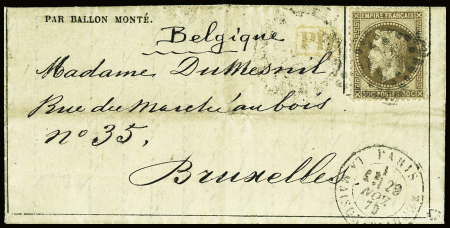 PAR BALLON MONTÉ.
Belgique
Madame DuMesnil
Rue du Marché au bois
n° 35.
Bruxelles
EMPIRE FRANÇAIS
PARIS
29
NOV
70